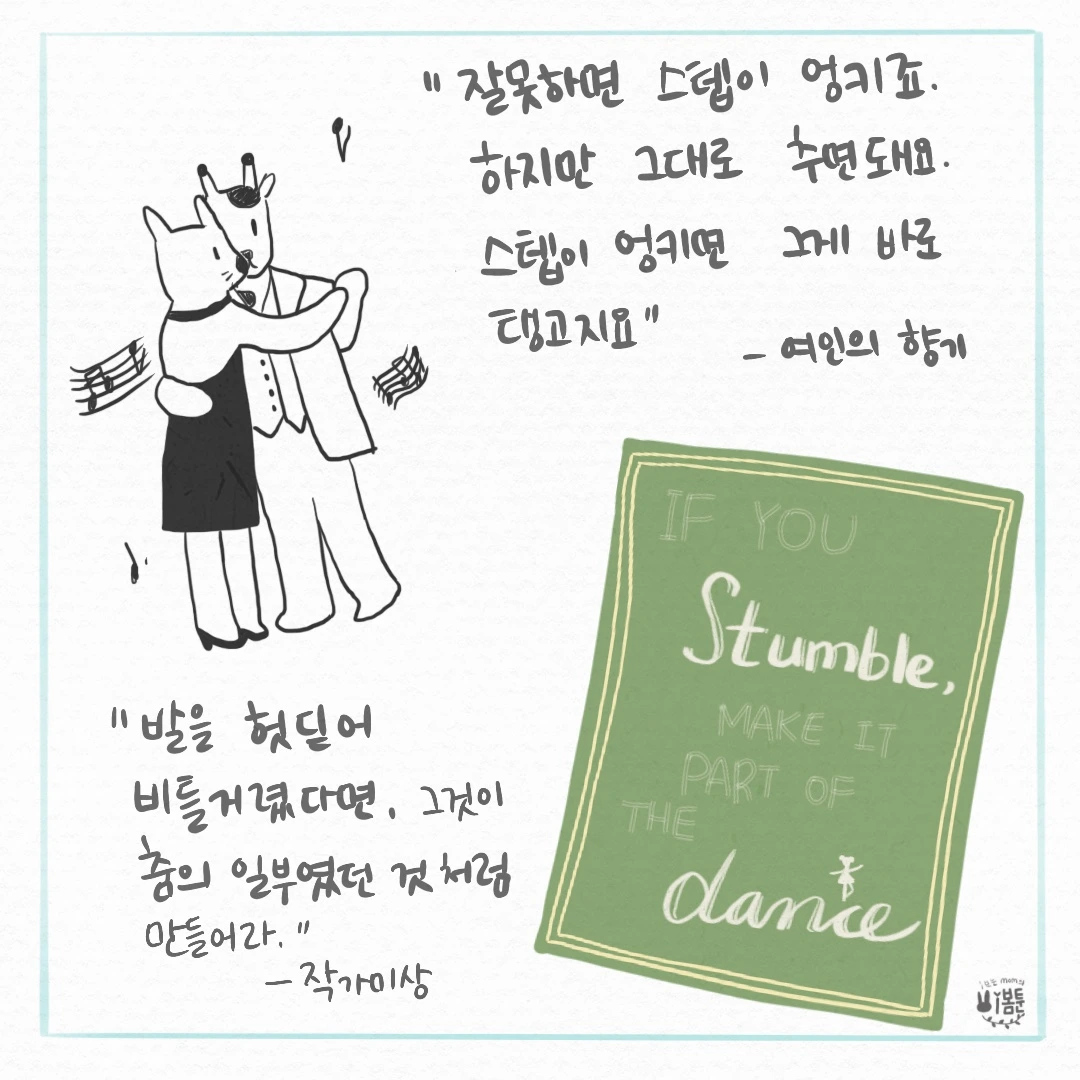 "잘못하면 스텝이 엉키죠.
하지만 그대로 추면돼요.
스텝이 엉키면 그게 바로
탱고지요"
- 여인의 향기
IF YOU
Stumble,
MAKE IT
PART OF
THE
dance
"발을 헛딛어
비틀거렸다면, 그것이
춤의 일부였던 것처럼
만들어라."
- 작가미상